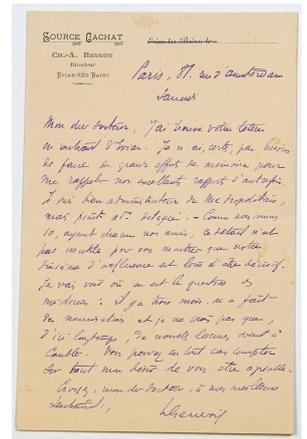 SOURCE CACHAT
CH.-A. BESSON
Directeur
EVIAN-LES-BAINS
Evian-les-Bains, le
Paris, 81, rue d'Amsterdam
Samedi
Mon cher docteur, J'ai trouvé votre lettre
en rentrant d'Evian. Je n'ai, certes, pas besoin
de faire de grands efforts de mémoire pour
me rappeler nos excellents rapports d'autrefois.
Je suis bien administrateur du Métropolitain,
mais point adm. délégué. - Comme nous sommes
10, ayant chacun nos amis, ce détail n'est
pas inutile pour vous montrer que notre
dixième d'influence est loin d'être décisif.
Je vais voir où en est la question des
médecins : il y a trois mois, on a fait
des nominations et je ne crois pas que,
d'ici longtemps, de nouvelles lacunes soient à
combler. Vous pouvez en tout cas compter
sur tout mon désir de vous être agréable.
Croyez, mon cher docteur, à mes meilleurs
sentiments,